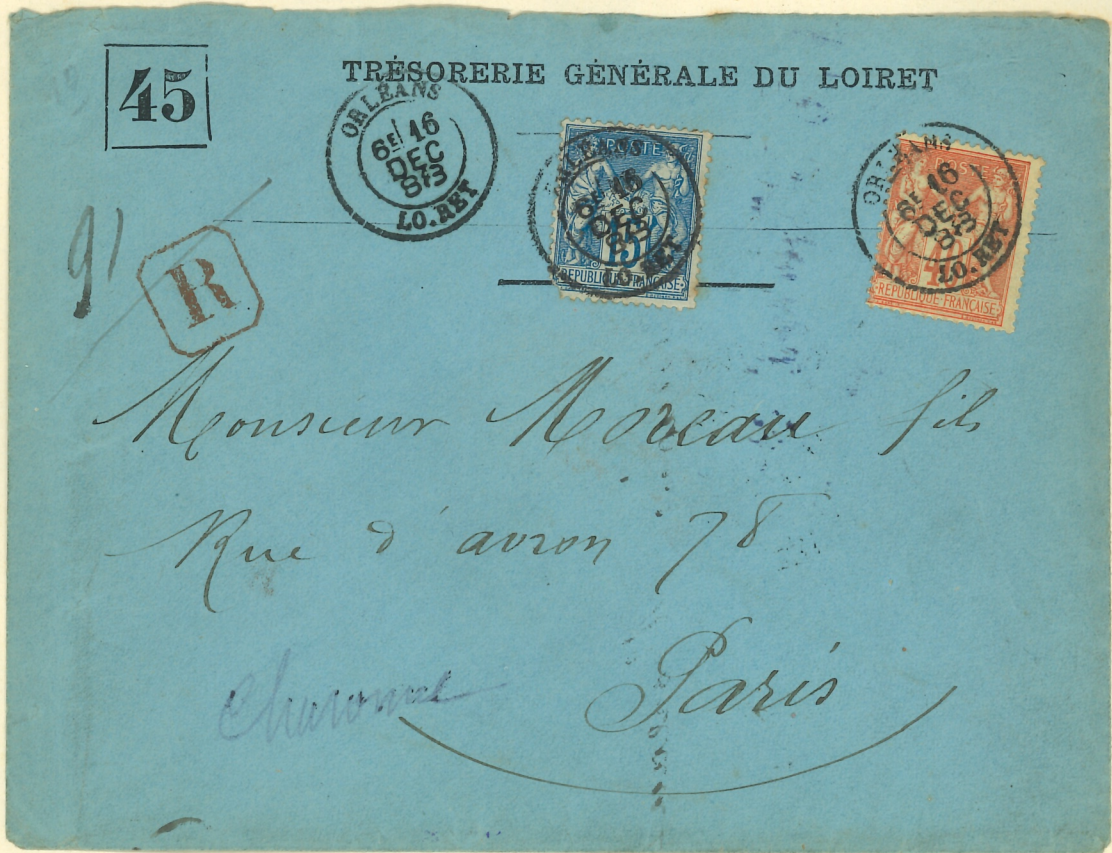 45
TRÉSORERIE GÉNÉRALE DU LOIRET
ORLÉANS
6E/ 16
DEC
83
LOIRET
ORLÉANS
6E 16
DEC
83
LOIRET
POSTE
15
REPUBLIQUE FRANÇAISE
ORLÉANS
6E 16
DEC
83
LOIRET
POSTE
40
REPUBLIQUE FRANÇAISE
91
R
Monsieur Moreau fils
Rue d'avron 78
Paris
Charonne